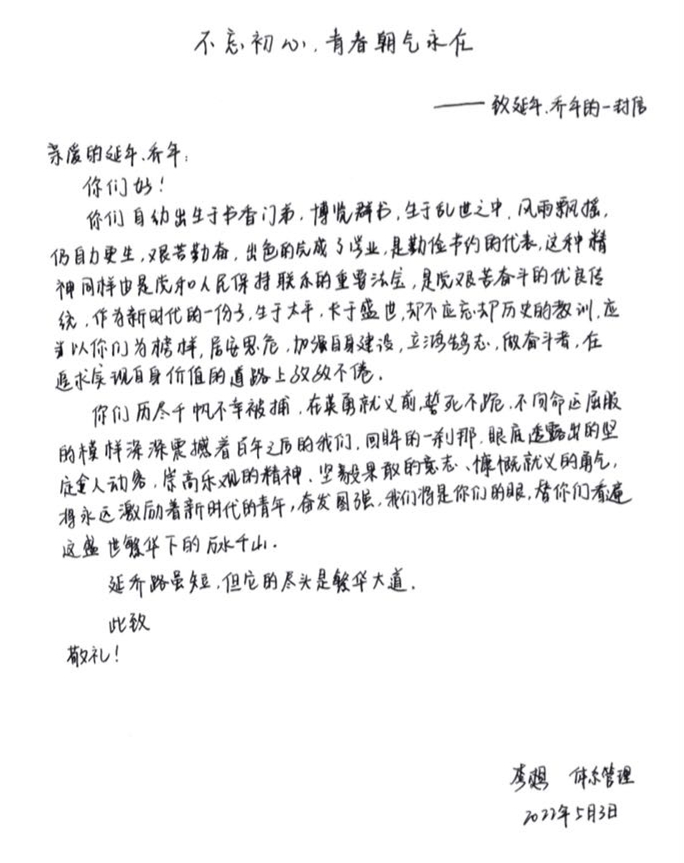 不忘初心,青春朝气永在
——致延年、乔年的一封信
亲爱的延年、乔年:
你们好!
你们自幼出生于书香门第,博览群书,生于乱世之中,风雨飘摇,
仍自力更生,艰苦勤奋,出色的完成了学业,是勤俭节约的代表,这种精
神同样也是党和人民保持联系的重要法宝,是党艰苦奋斗的优良传
统,作为新时代的一份子,生于太平,长于盛世,却不应忘却历史的教训,应
当以你们为榜样,居安思危,加强自身建设,立鸿鹄志,做奋斗者,在
追求实现自身价值的道路上孜孜不倦。
你们历尽千帆不幸被捕,在英勇就义前,誓死不跪,不向命运屈服
的模样深深震撼着百年之后的我们,回眸的一刹那,眼底透露出的坚
定令人动容,崇高乐观的精神、坚毅果敢的意志、慷慨就义的勇气,
将永远激励着新时代的青年,奋发图强,我们将是你们的眼,替你们看遍
这盛世繁华下的万水千山.
延乔路虽短,但它的尽头是繁华大道.
此致
敬礼!
李想 体系管理
2022年5月3日